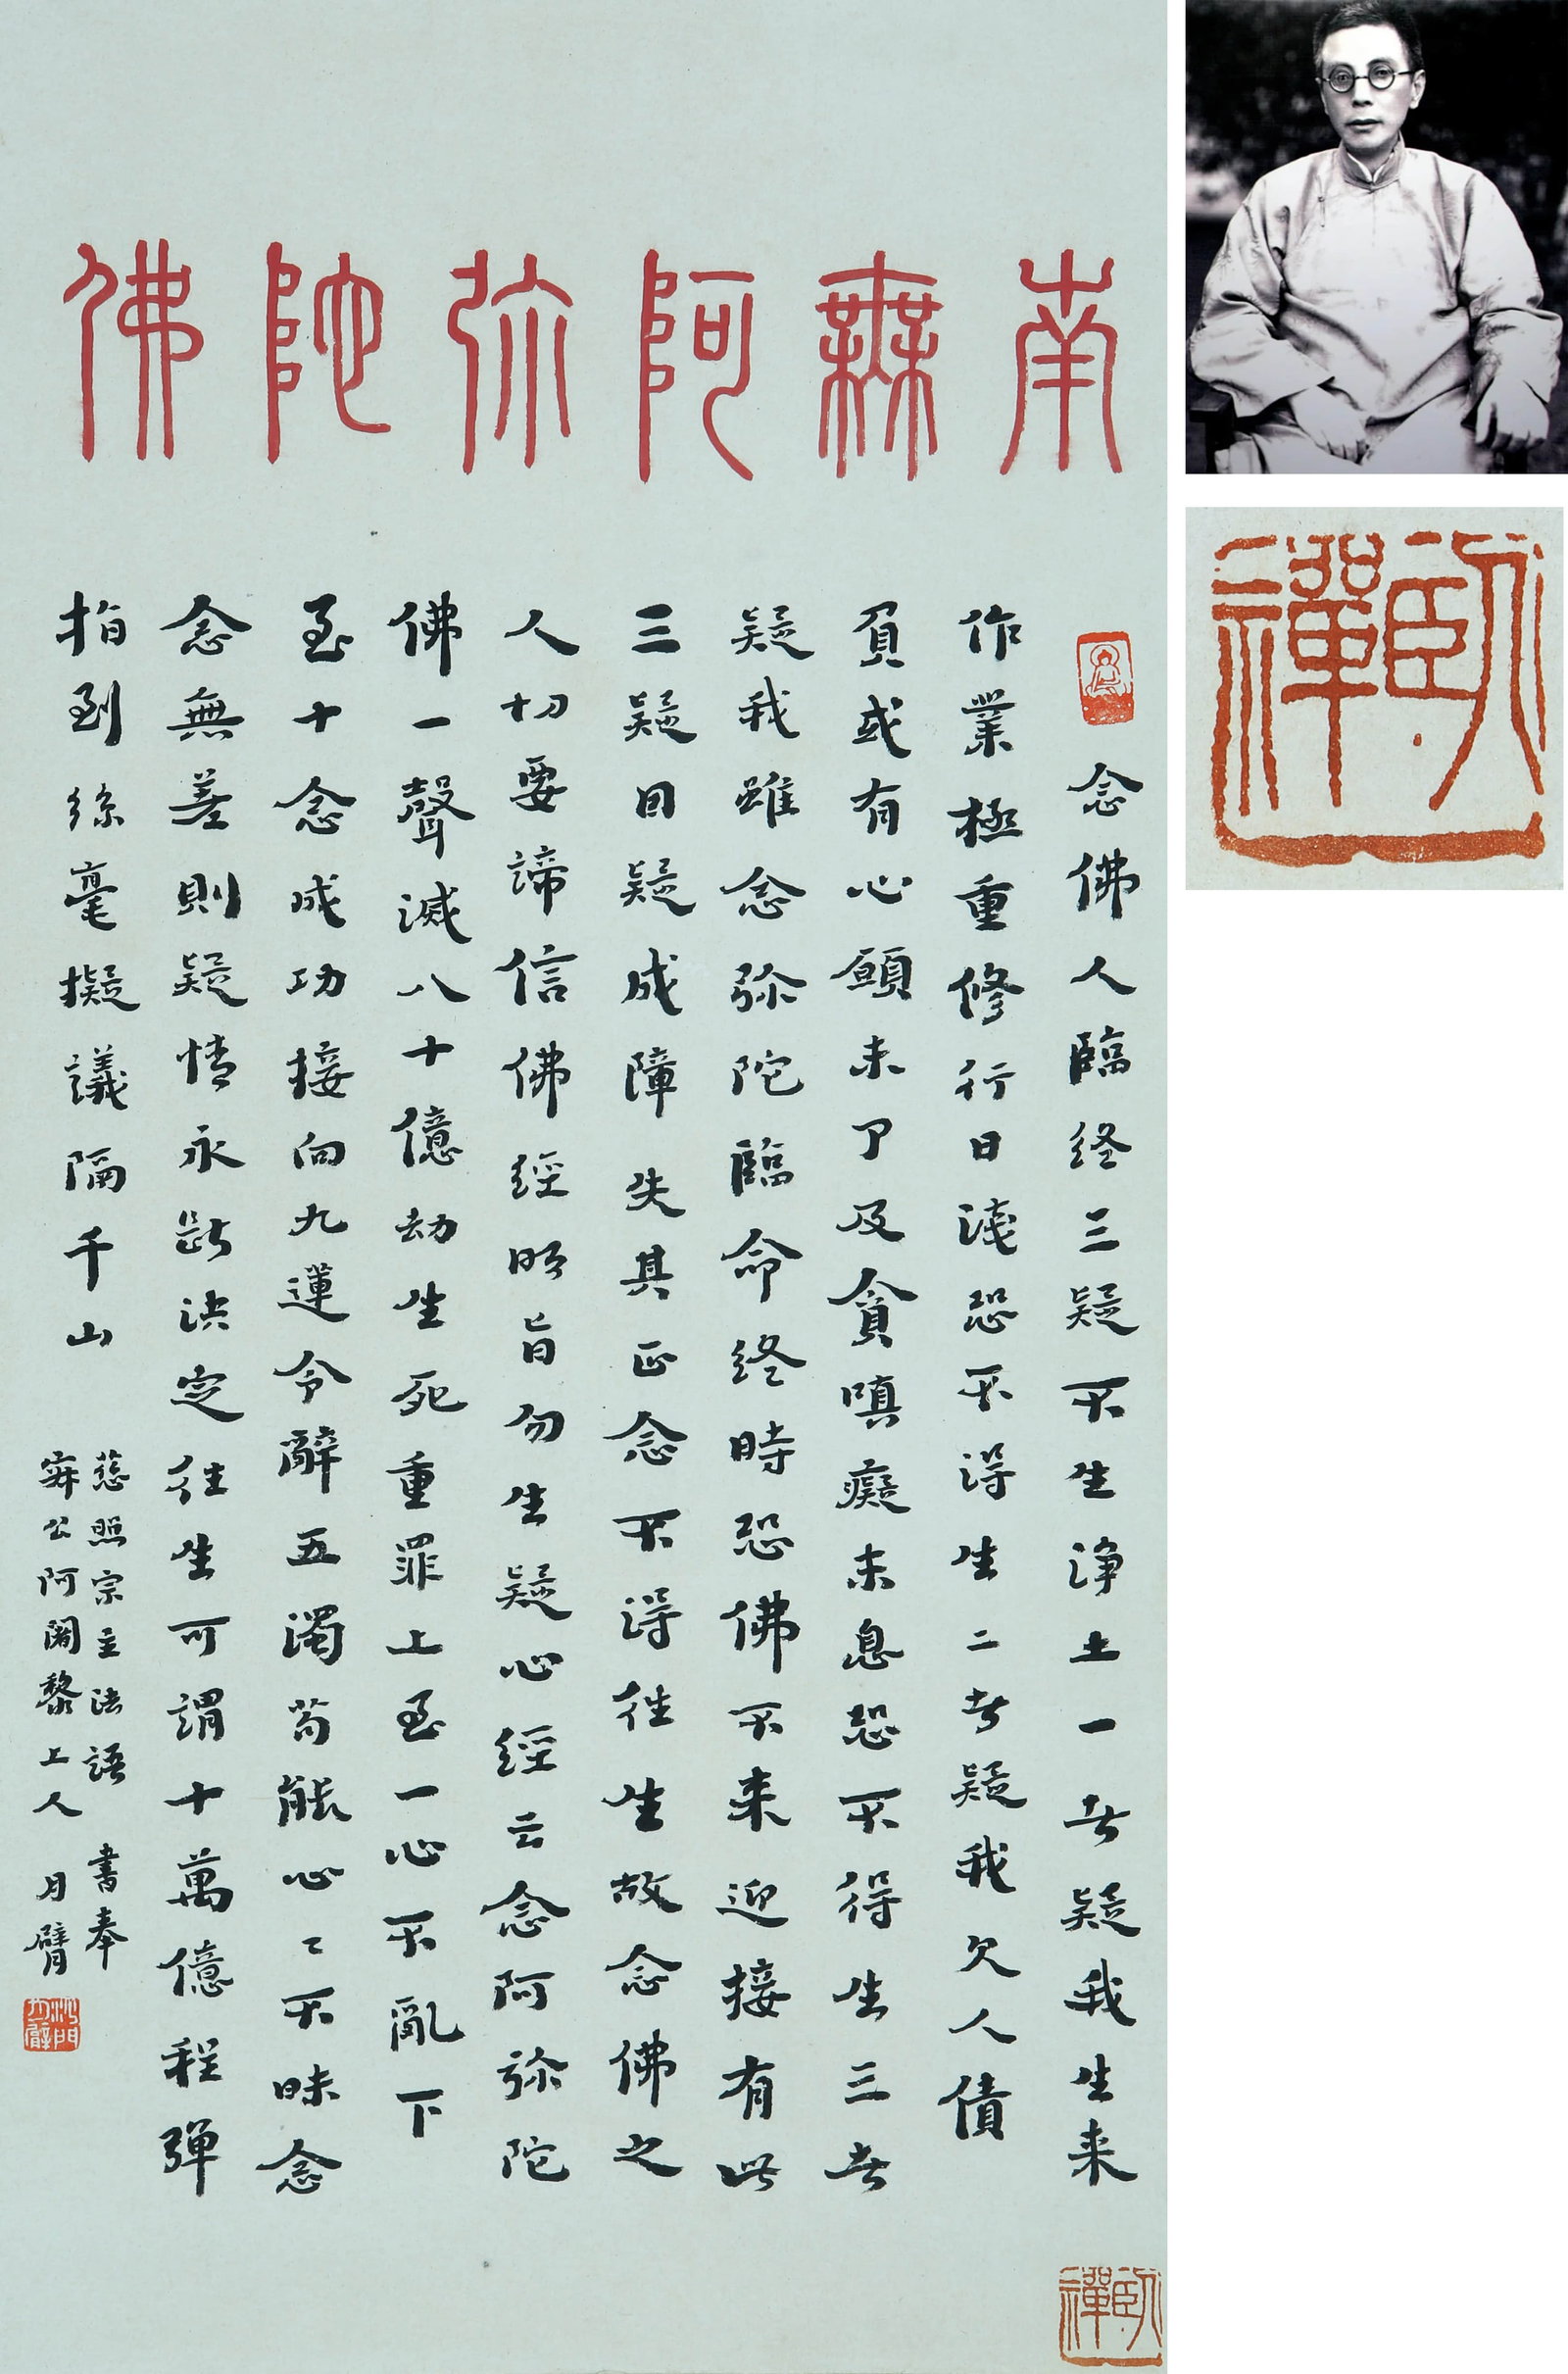 南無阿弥陀佛
念佛人臨終三疑不生淨土一者疑我生来
作業極重修行日淺恐不得生二者疑我欠人債
負或有心願未了及貪嗔癡未息恐不得生三者
疑我雖念弥陀臨命終時恐佛不来迎接有此
三疑因疑成障失其正念不得往生故念佛之
人切要諦信佛經明旨勿生疑心經云念阿弥陀
佛一聲滅八十億劫生死重罪上至一心不亂下
至十念成功接向九蓮令辭五濁苟能心〻不昧念
念無差則疑情永斷決定往生可謂十萬億程弹
指到絲毫擬議隔千山
慈照宗主法語 書奉
寐公阿闍黎上人 月臂
沙門月臂
臥禪
臥禪